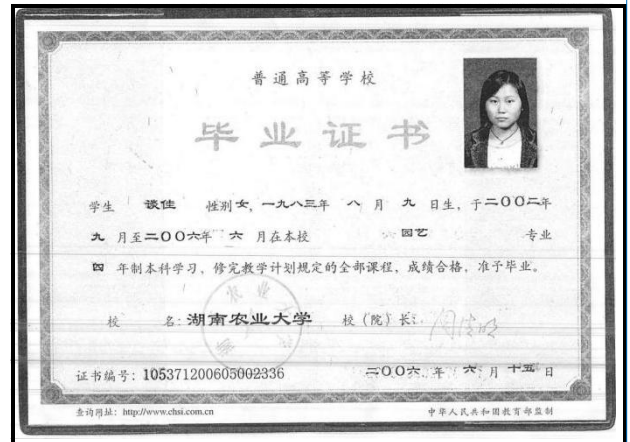 普通高等学校
毕业证书
学生 谈佳 性别 女, 一九八三年 八 月 九 日生, 于二〇〇二年
九 月至二〇〇六年 六 月在本校 园艺 专业
四 年制本科学习, 修完教学计划规定的全部课程, 成绩合格, 准予毕业。
校 名: 湖南农业大学 校(院)长:
证书编号: 105371200605002336 二〇〇六 年 六 月 十五 日
查询网址: http://www.chsi.com.cn 中华人民共和国教育部监制